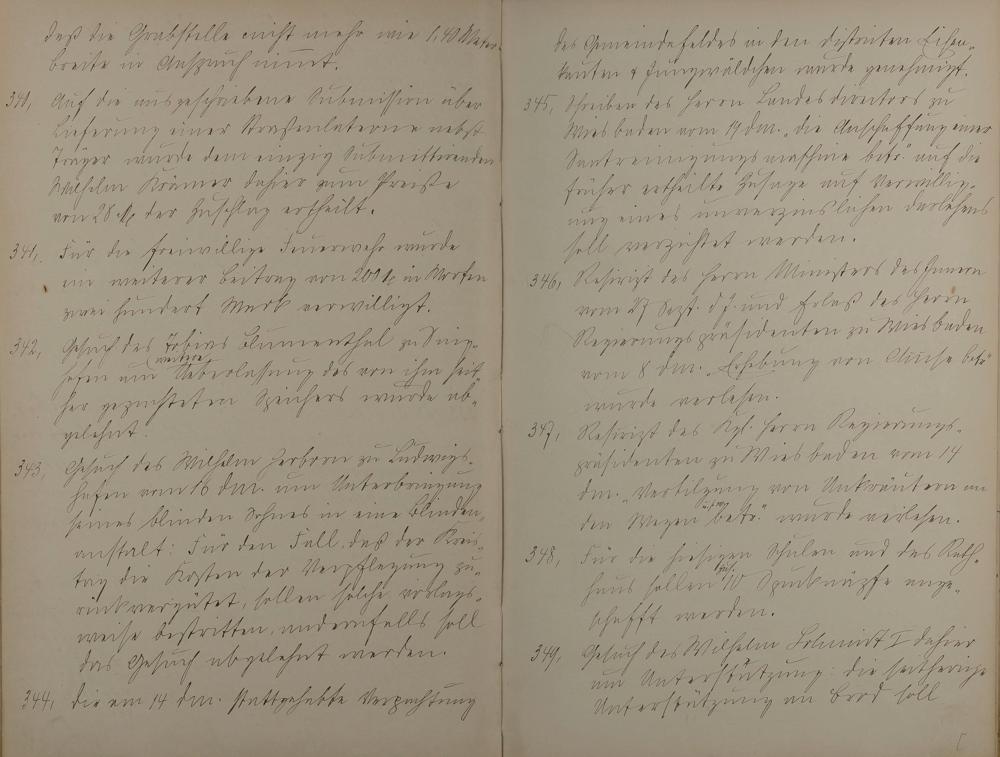 daß die Grabstelle nicht mehr wie 1,40 Meter
breite in Anspruch nimmt.
340, Auf die ausgeschriebene Submission über
Lieferung einer Straßenlaterne nebst
Träger wurde dem einzig Submittirenden
Wilhelm Krämer dahier zum Preiße
von 28 M der Zuschlag ertheilt.
341, Für die freiwillige Feuerwehr wurde
ein weiterer Beitrag von 200 M in Worten
zwei hundert Mark verwilligt.
342, Gesuch des Tobias Blumenthal zu
weitere
um Ueberlassung des von ihm seit
her gepachteten Speichers wurde ab-
gelehnt.
343, Gesuch des Wilhelm Herborn zu Ludwigs-
hafen vom 10 dM. um Unterbringung
seines blinden Sohnes in eine Blinden-
anstalt: Für den Fall, daß der Kreis-
tag die Kosten der Verpflegung zu-
rückvergütet, sollen solche vorlags-
weise bestritten, andernfalls soll
das Gesuch abgelehnt werden.
344, die am 14 dM. stattgehabte Verpachtung
des Gemeindefeldes in den Distrikten Eisen-
kauten & Jungwäldchen wurde genehmigt.
345, Schreiben des Herrn Landesdirectors zu
Wiesbaden vom 14 dM. „die Anschaffung einer
maschine betr." auf die
früher ertheilte Zusage auf Verwillig-
ung eines unverzinslichen Darlehens
soll verzichtet werden.
346, Rescript des Herrn Ministers des Innern
vom 27 Sept. d J. und Erlaß des Herrn
Regierungspräsidenten zu Wiesbaden
vom 8 dM. „Erhebung von betr"
wurde verlesen.
347, Rescript des Kgl. Herrn Regierungs-
präsidenten zu Wiesbaden vom 14
dM. „Vertilgung von Unkräutern an
u.s.w.
den Wegen betr." wurde verlesen.
348, Für die hiesigen Schulen und das Rath-
haus sollen 10 Spucknäpfe ange-
schafft werden.
349, Gesuch des Wilhelm Schmidt I dahier
um Unterstützung: die seitherige
Unterstützung an Brod soll